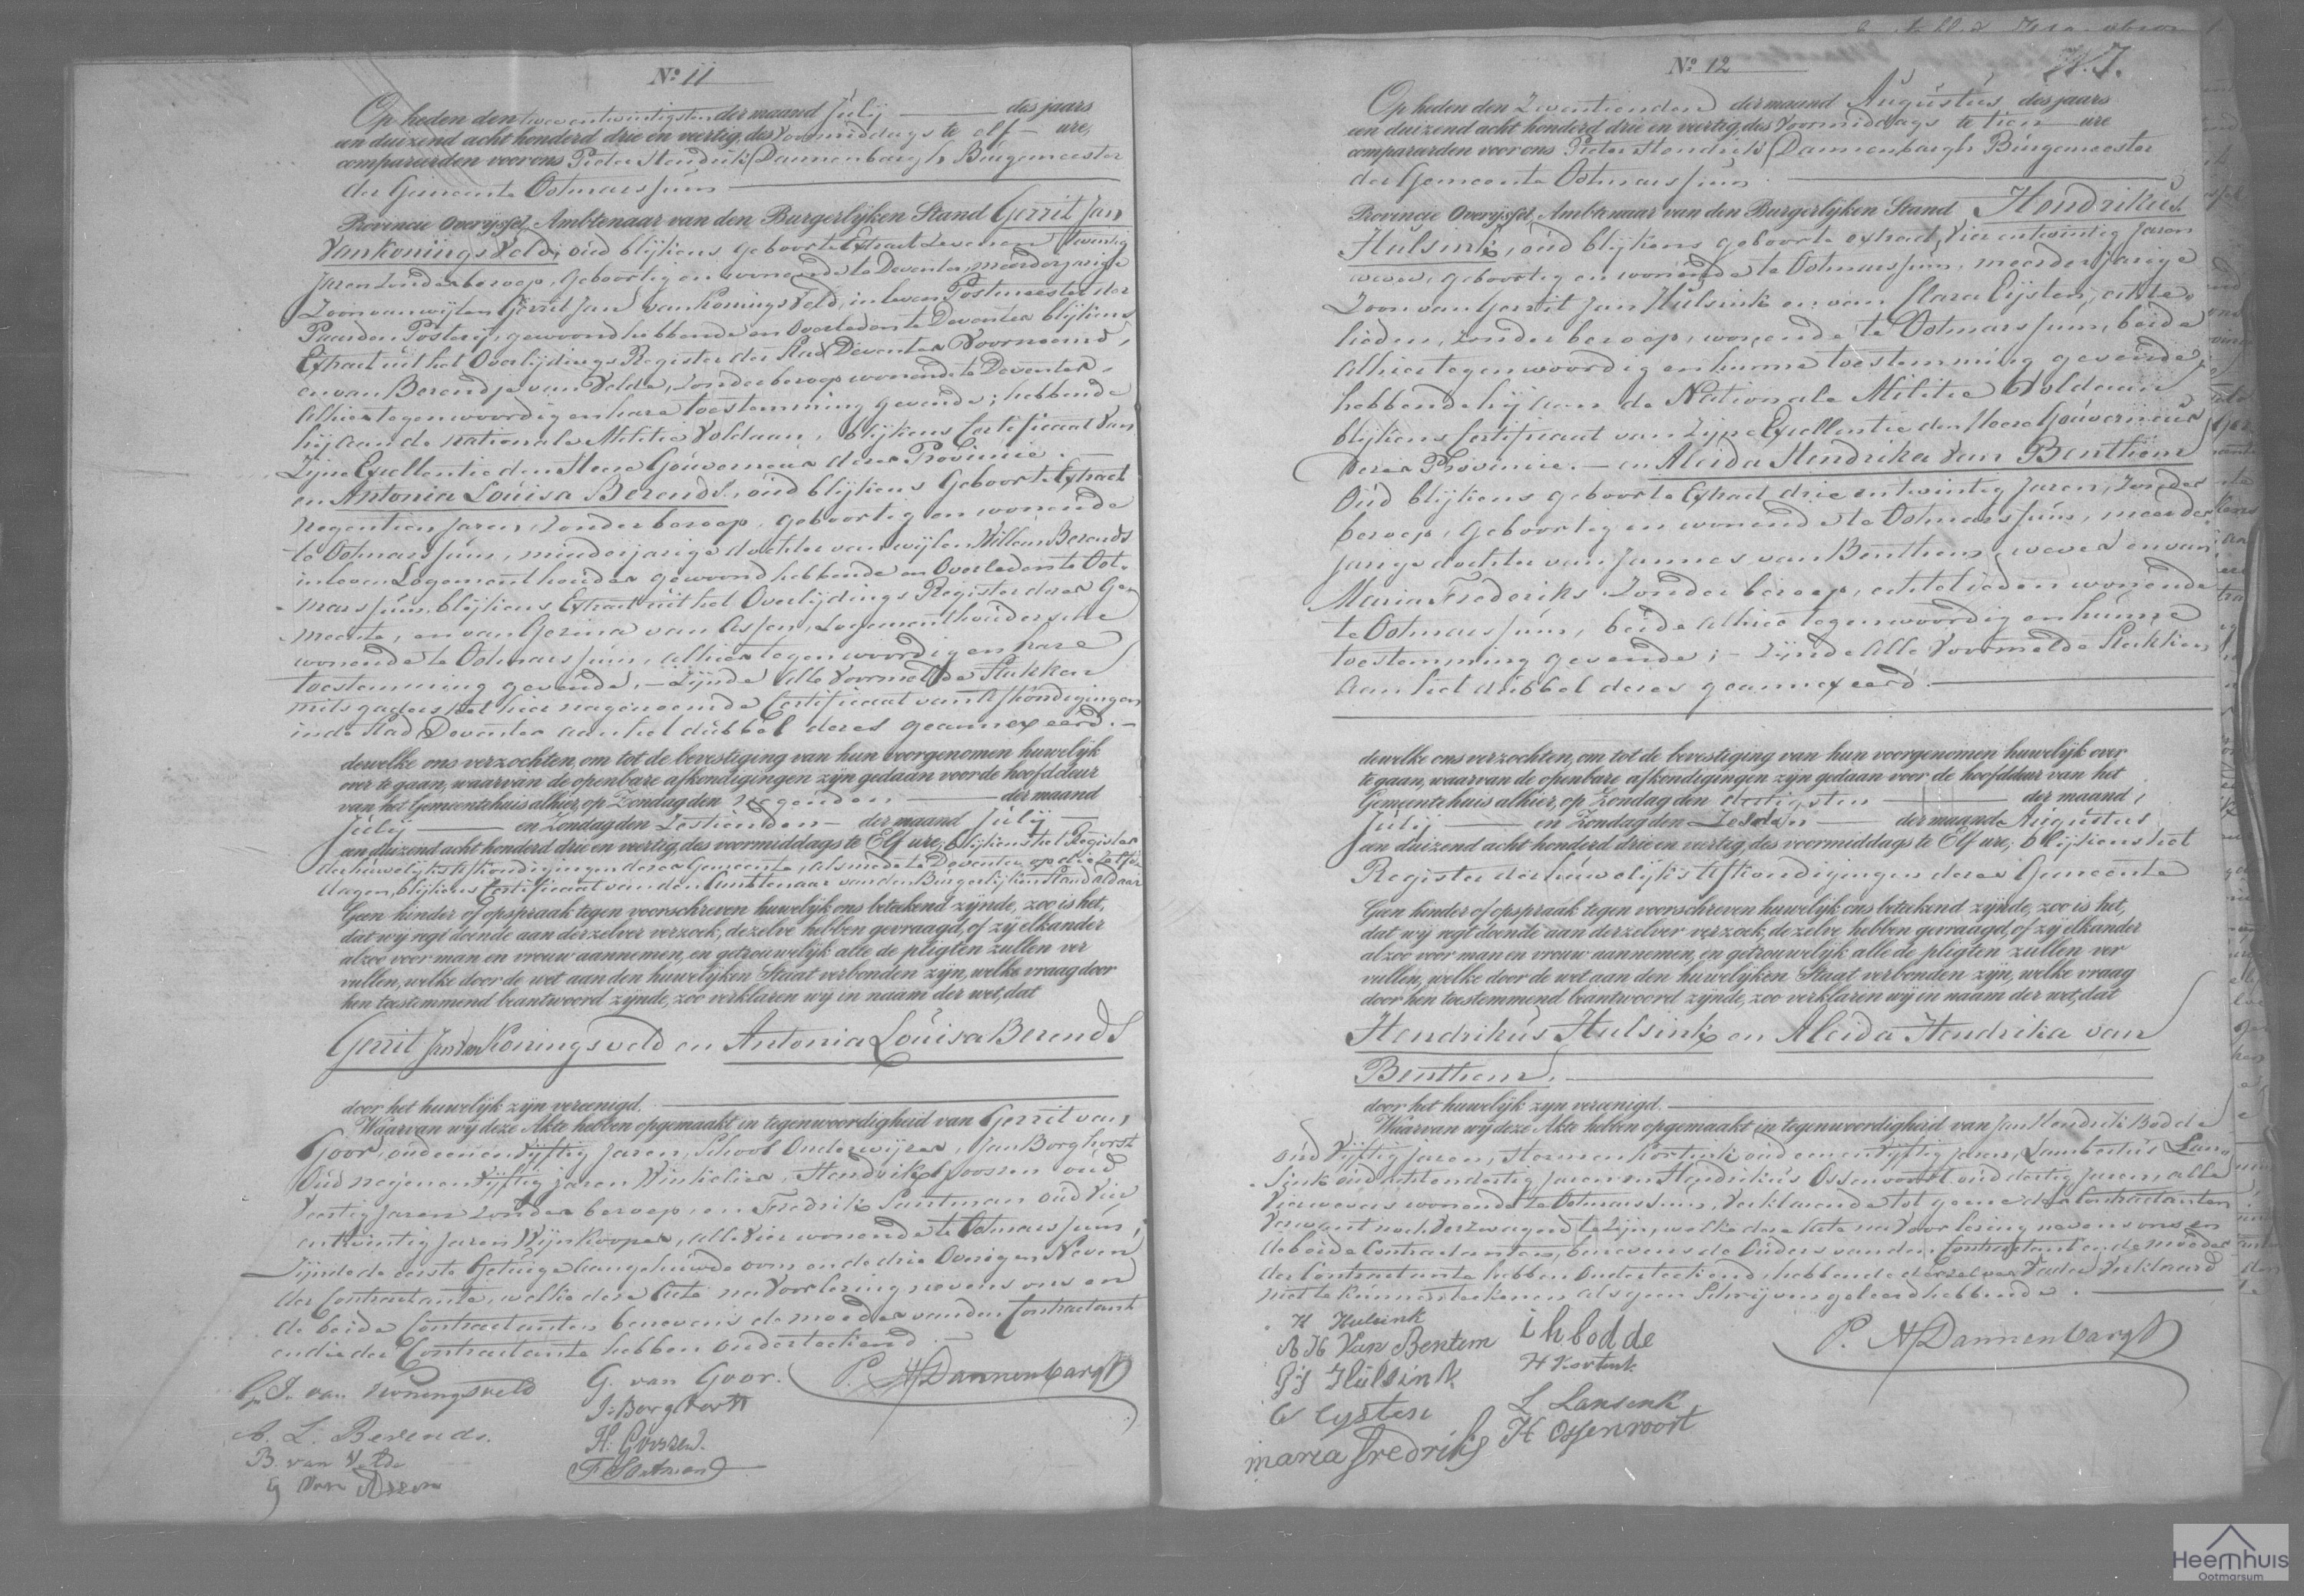 N.º 11
Op heden den twee entwintigsten der maand Julij des jaars
een duizend acht honderd drie en veertig, des Voormiddags te elf ure,
compareerden voor ons Pieter Hendrik Dannenbargh Burgemeester
der Gemeente Ootmarssum
Provincie Overijssel, Ambtenaar van den Burgerlijken Stand Gerrit Jan
van Koningsveld, oud blijkens geboorte Extract Zevenen twintig
Jaren zonder beroep, geboortig en wonende te Deventer, meerderjarige
Zoon van wijlen Gerrit Jan van Koningsveld, in leven Postmeester der
Paarden Posterij, gewoond hebbende en Overleden te Deventer blijkens
Extract uit het Overlijdings Register der Stad Deventer Voornoemd,
en van Berendje van Velde, zonder beroep wonende te Deventer,
alhier tegenwoordig en hare toestemming gevende; hebbende
hij aan de nationale Militie Voldaan, blijkens Certificaat van
Zijne Excellentie den Heere Gouverneur dezer Provincie.
en Antonia Louisa Berends, oud blijkens Geboorte Extract
Negentien Jaren, zonder beroep, geboortig en wonende
te Ootmarssum, minderjarige dochter van wijlen Willem Berends
in leven Logementhouder gewoond hebbende en Overleden te Oot-
marssum, blijkens Extract uit het Overlijdings Register dezer Ge-
meente, en van Gezina van Assen, Logementhoudersche
wonende te Ootmarssum, alhier tegenwoordig en hare
toestemming gevende, – Zijnde alle Voormelde Stukken
mitsgaders het hier nagenoemde Certificaat van afkondigingen
in de Stad Deventer aan het dubbel dezes geannexeerd. –
dewelke ons verzochten, om tot de bevestiging van hun voorgenomen huwelijk
over te gaan, waarvan de openbare afkondigingen zijn gedaan voor de hoofddeur
van het Gemeentehuis alhier, op Zondag den Negenden der maand
Julij en Zondag den Zestienden der maand Julij
een duizend acht honderd drie en veertig, des voormiddags te Elf ure, blijkens het Register
der huwelijks Afkondigingen dezer Gemeente, alsmede te Deventer op die zelfde
dagen, blijkens Certificaat van den Ambtenaar van den Burgerlijken Stand aldaar
Geen hinder of opspraak tegen voorschreven huwelijk ons betekend zijnde, zoo is het,
dat wij regt doende aan derzelver verzoek, dezelve hebben gevraagd, of zij elkander
alzoo voor man en vrouw aannemen, en getrouwelijk alle de pligten zullen ver
vullen, welke door de wet aan den huwelijken Staat verbonden zijn, welke vraag door
hen toestemmend beantwoord zijnde, zoo verklaren wij in naam der wet, dat
Gerrit Jan van Koningsveld en Antonia Louisa Berends
door het huwelijk zijn vereenigd.
Waarvan wij deze Akte hebben opgemaakt in tegenwoordigheid van Gerrit van
Goor, oud een en vijftig Jaren, School Onderwijzer, Jan Borghorst
Oud negen en vijftig Jaren Winkelier, Hendrik Goossen oud
Veertig Jaren zonder beroep, en Fredrik Santman oud Vier
entwintig Jaren Wijnkooper, alle vier wonende te Ootmarssum,
Zijnde de eerste Getuige Aangehuwde oom en de drie Overigen Neven
der Contractante, welke deze Acte na Voorlezing nevens ons en
de beide Contractanten benevens de moeder van den Contractant
en die der Contractante hebben onderteekend
G. J. van Koningsveld
A. L. Berends.
B. van Velde
G van Assen
G. van Goor.
J: Borghorst
H. Goossen.
F Santman
P. H Dannenbargh
N.º 12
Op heden den Zeventienden der maand Augustus des jaars
een duizend acht honderd drie en veertig, des Voormiddags te tien ure
compareerden voor ons Pieter Hendrik Dannenbargh Burgemeester
der Gemeente Ootmarssum
Provincie Overijssel, Ambtenaar van den Burgerlijken Stand, Hendrikus
Hulsink, oud blijkens geboorte extract, Vier entwintig Jaren
wever, geboortig en wonende te Ootmarssum, meerderjarige
Zoon van Gerrit Jan Hulsink en van Clara Eijsten, echte-
lieden, zonder beroep, wonende te Ootmarssum, beide
alhier tegenwoordig en hunne toestemming gevende,
hebbende hij aan de Nationale Militie Voldaan
blijkens Certificaat van Zijne Excellentie den Heere Gouverneur
dezer Provincie. – en Aleida Hendrika van Benthem
Oud blijkens geboorte Extract drie entwintig Jaren, zonder
beroep, geboortig en wonende te Ootmarssum, meerder
jarige dochter van Jannes van Benthem, wever en van
Maria Frederiks zonder beroep, echtelieden wonende
te Ootmarssum, beide alhier tegenwoordig en hunne
toestemming gevende; – Zijnde alle Voormelde Stukken
aan het dubbel dezes geannexeerd.
dewelke ons verzochten, om tot de bevestiging van hun voorgenomen huwelijk over
te gaan, waarvan de openbare afkondigingen zijn gedaan voor de hoofddeur van het
Gemeentehuis alhier, op Zondag den dertigsten der maand
Julij en Zondag den Zesden der maand Augustus
een duizend acht honderd drie en veertig, des voormiddags te Elf ure, blijkens het
Register der huwelijks Afkondigingen dezer Gemeente
Geen hinder of opspraak tegen voorschreven huwelijk ons betekend zijnde, zoo is het,
dat wij regt doende aan derzelver verzoek, dezelve hebben gevraagd, of zij elkander
alzoo voor man en vrouw aannemen, en getrouwelijk alle de pligten zullen ver
vullen, welke door de wet aan den huwelijken Staat verbonden zijn, welke vraag
door hen toestemmend beantwoord zijnde, zoo verklaren wij in naam der wet, dat
Hendrikus Hulsink en Aleida Hendrika van
Benthem,
door het huwelijk zijn vereenigd.
Waarvan wij deze Akte hebben opgemaakt in tegenwoordigheid van Jan Hendrik Bodde
oud Vijftig Jaren, Hermen Kortink oud een en Vijftig Jaren, Lambertus Lan
sink oud acht en dertig Jaren en Hendrikus Ossenvoort oud dertig Jaren, alle
Vier wevers wonende te Ootmarssum, verklarende tot geene der Contractanten
Verwant noch Verzwagerd te zijn, welke deze Acte na Voorlezing nevens ons en
de beide Contractanten, benevens de Ouders van den Contractant en de moeder
der Contractante hebben Onderteekend, hebbende derzelver Vader Verklaard
niet te kunnen teekenen als geen Schrijven geleerd hebbende.
H Hulsink
A H Van Bentem
G J Hulsink
C Eysten
maria fredriks
i h bodde
H Kortink
L Lansink
H Ossenvoort
P. H Dannenbargh
Heemhuis
Ootmarsum